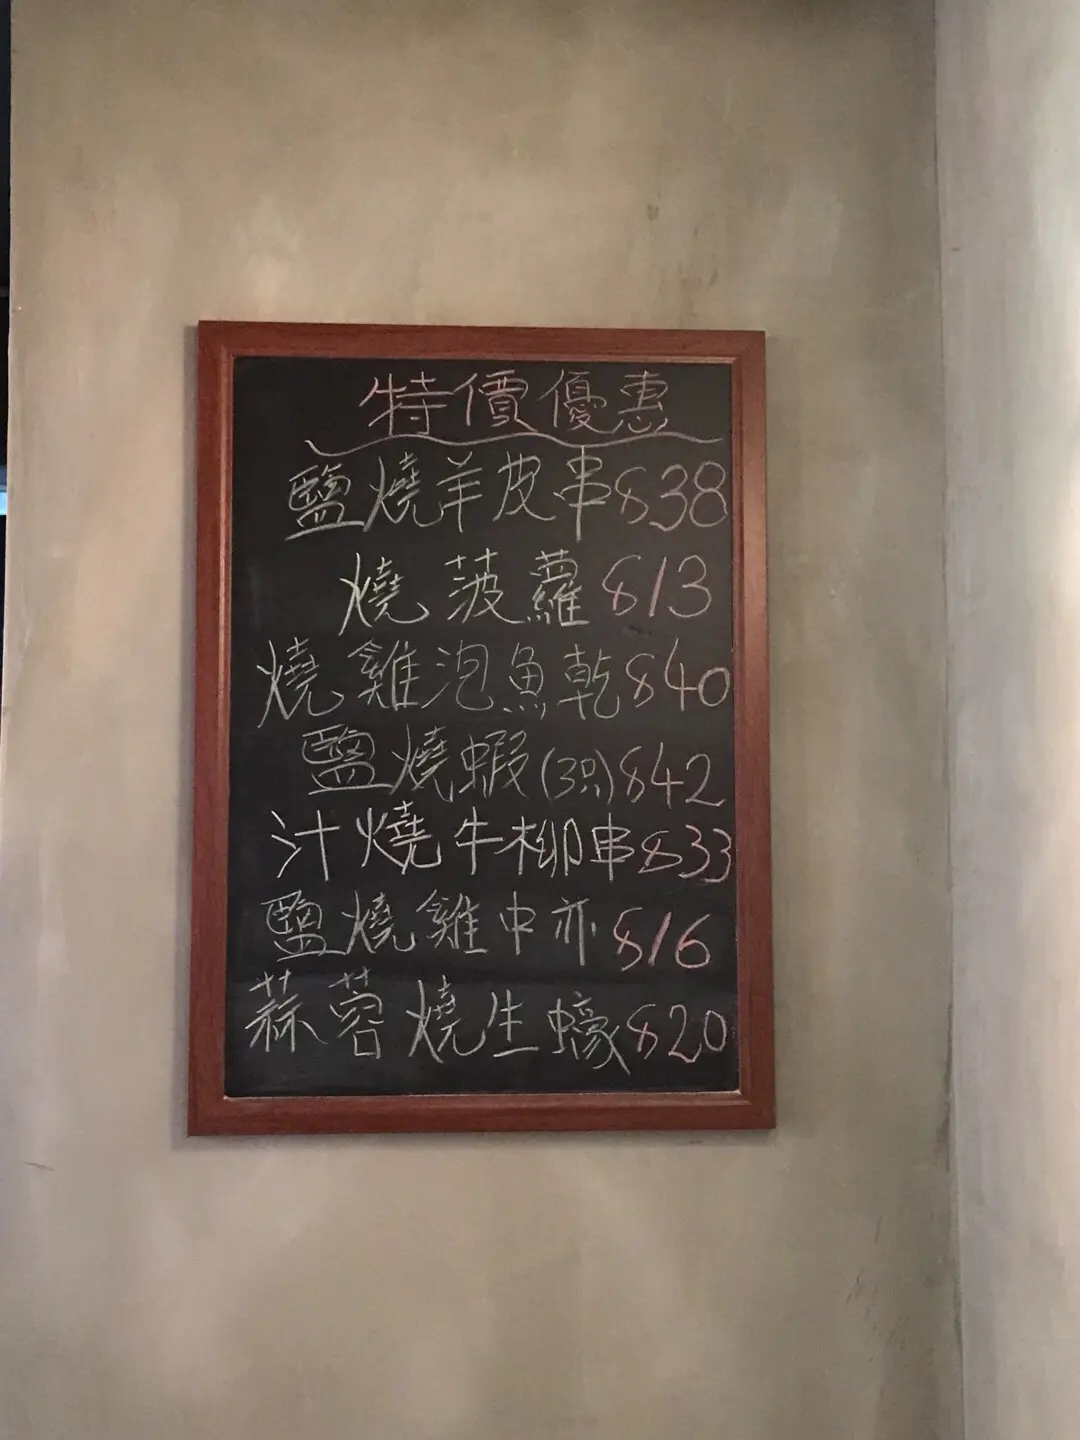 特價優惠
鹽燒羊皮串$38
燒菠蘿$13
燒雞泡魚乾$40
鹽燒蝦(3只)$42
汁燒牛柳串$33
鹽燒雞中亦$16
蒜蓉燒生蠔$20